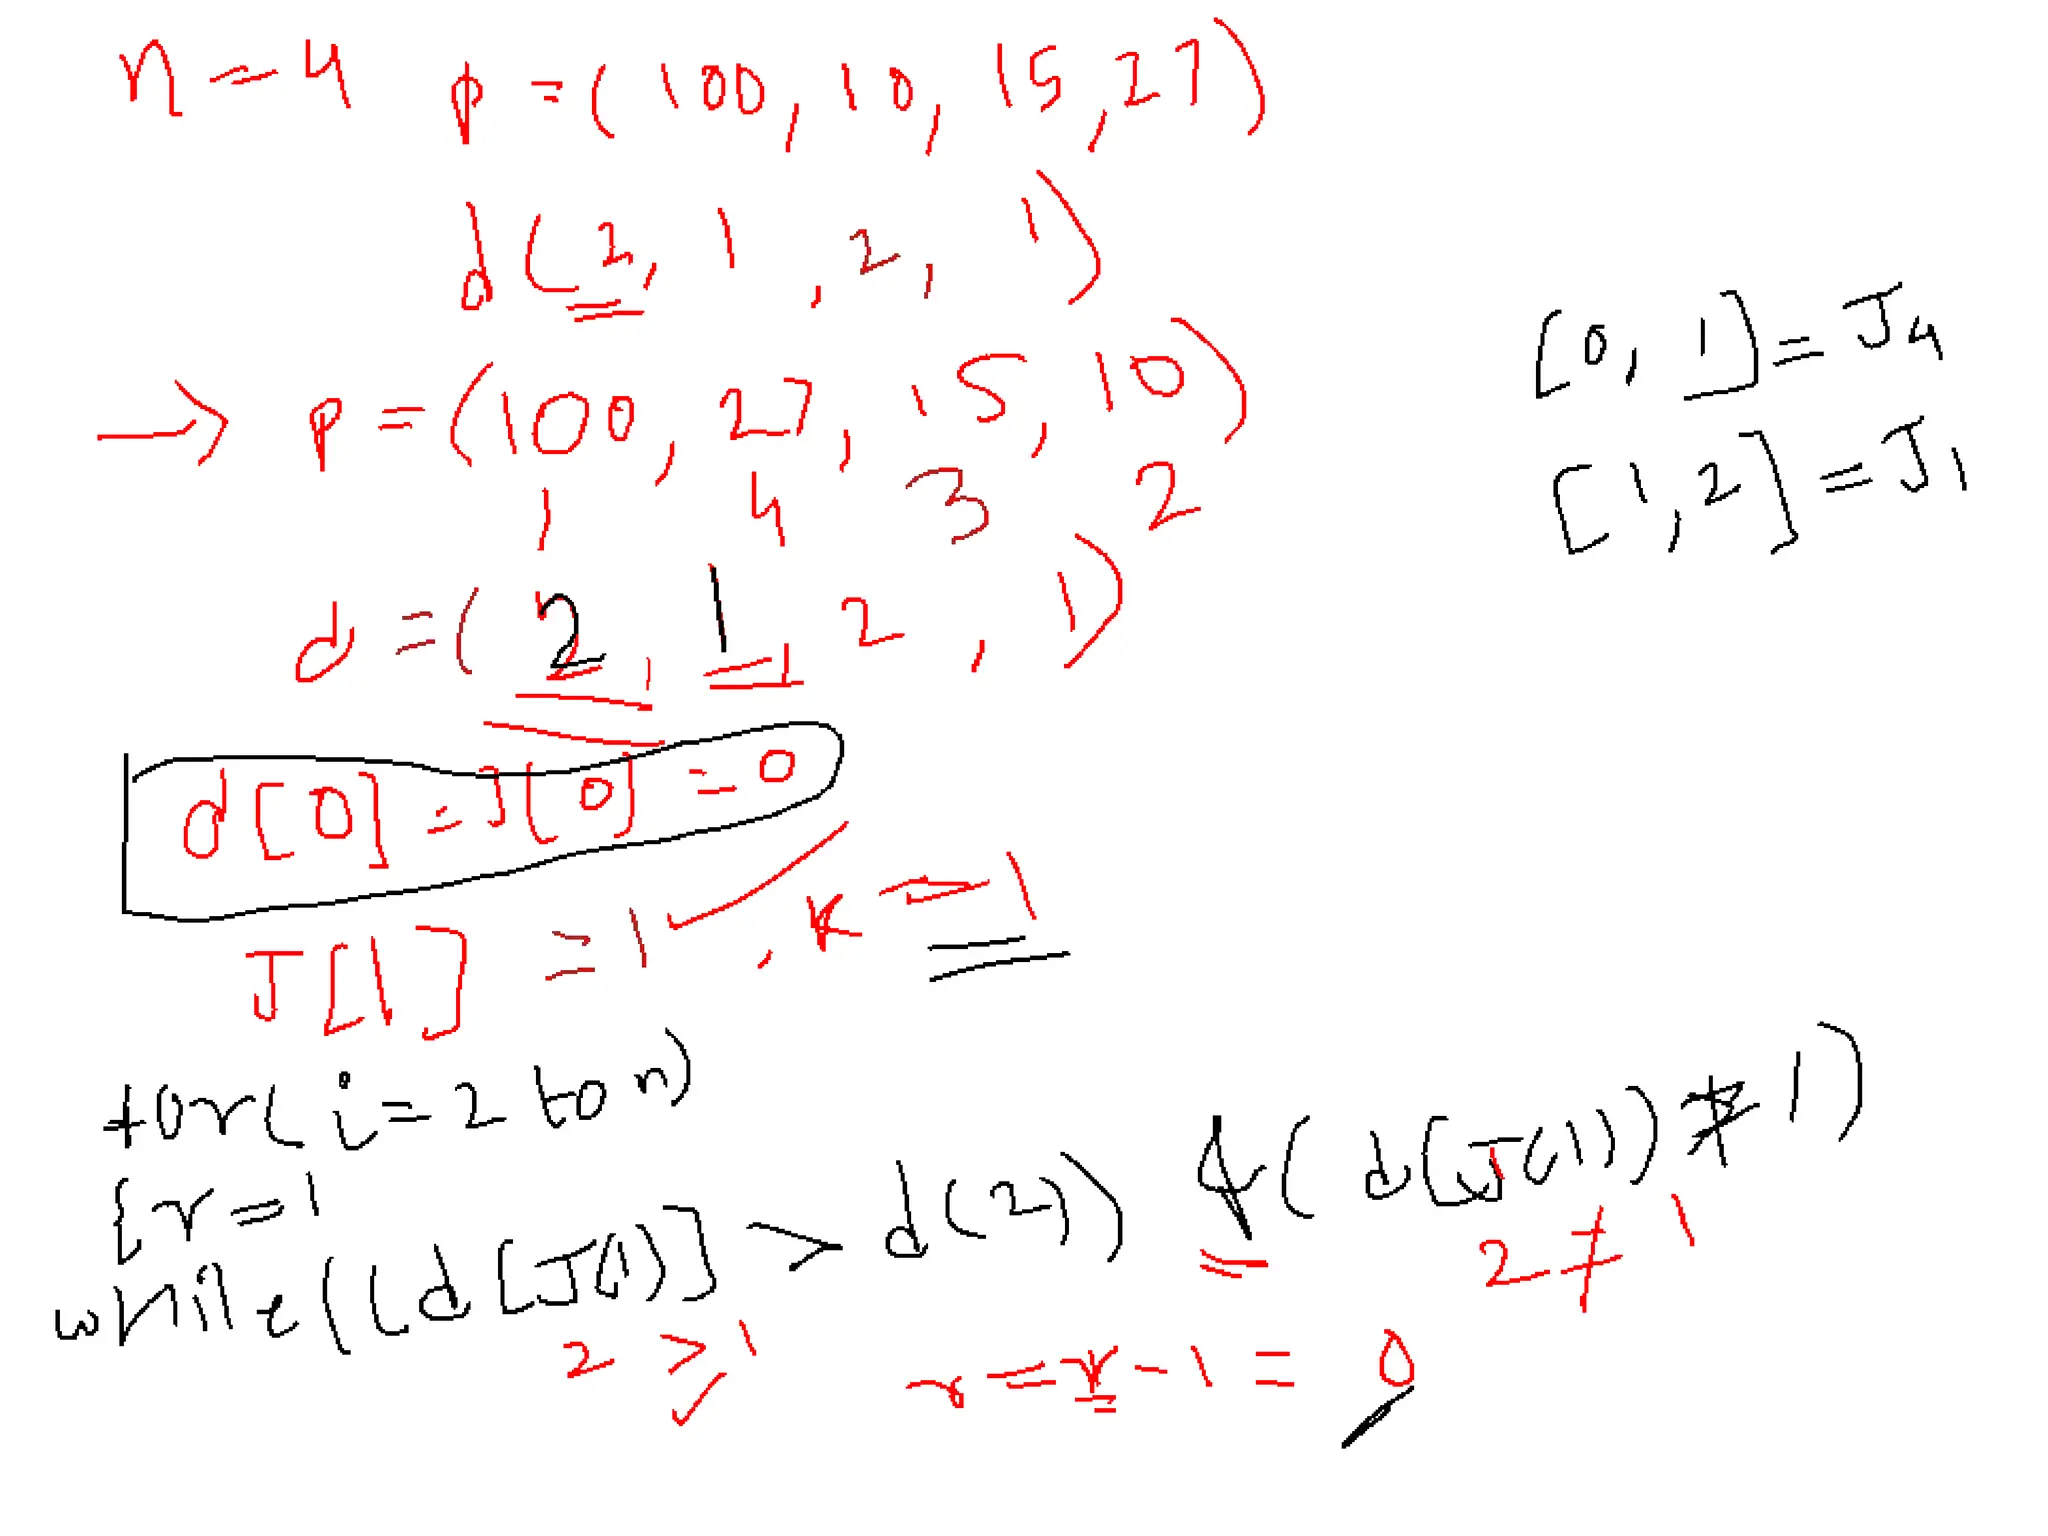 n = 4 p = (100, 10, 15, 27)
d(2, 1, 2, 1)
→ p = (100, 27, 15, 10)
1 4 3 2
d = (2, 1, 2, 1)
[0, 1] = J4
[1, 2] = J1
d[0] = J[0] = 0
J[1] = 1 , k = 1
for( i = 2 to n)
{r = 1
while((d[J(1)] > d(2)) & (d[J(1)) ≠ 1)
2 > 1 ✓ 2 ≠ 1
r = r - 1 = 0